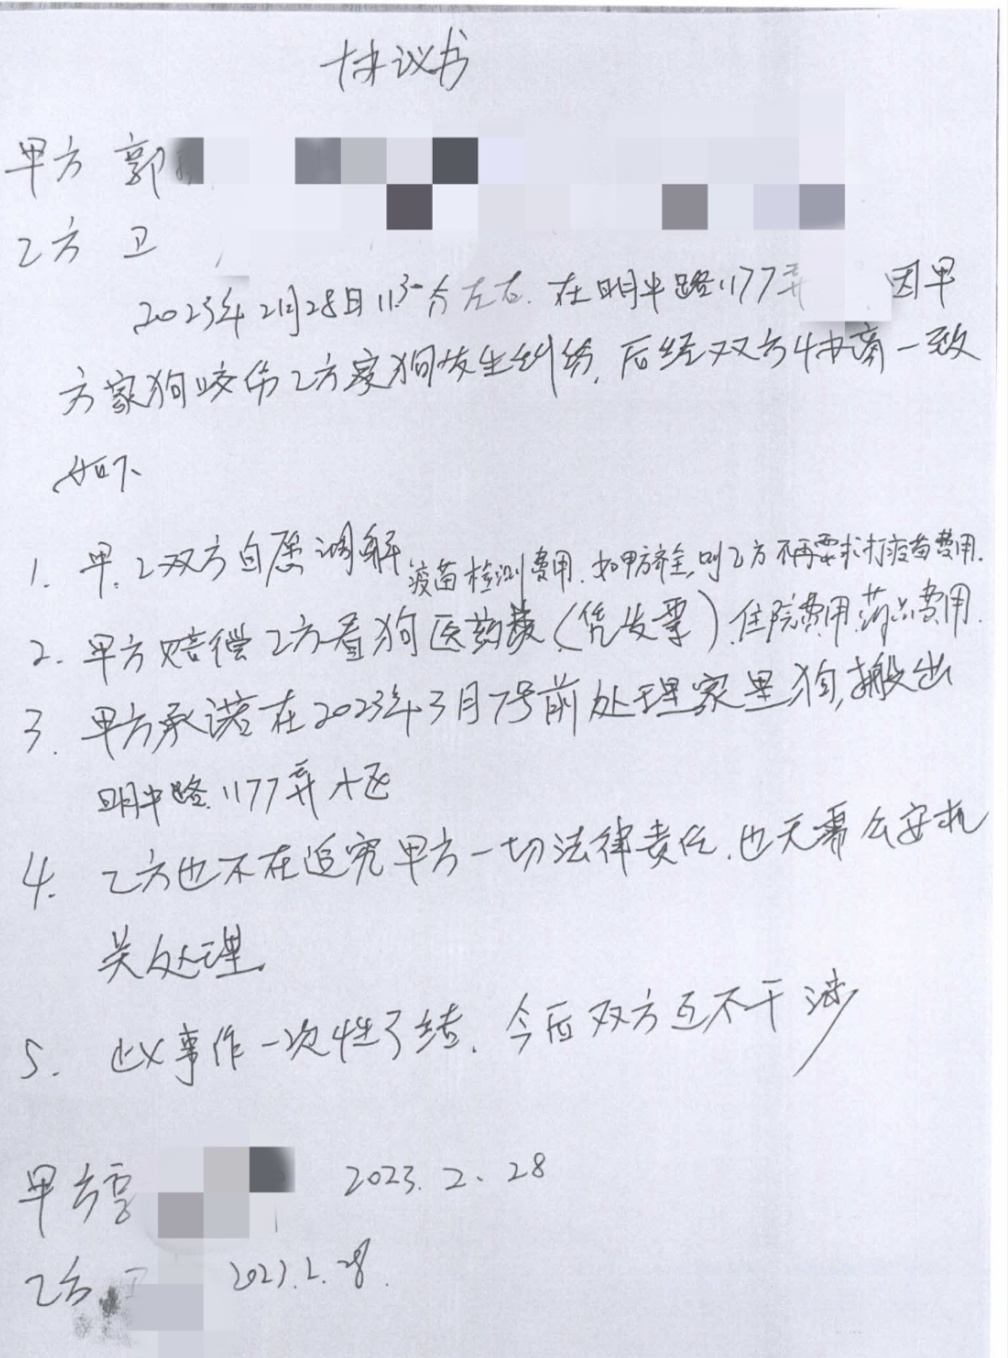 协议书
甲方 郭
乙方 卫
2023年2月28日11:30分左右.在明中路1177弄 因甲
方家狗咬伤乙方家狗发生纠纷,后经双方协商一致
如下
1. 甲.乙双方自愿调解
疫苗检测费用.如甲方齐全,则乙方不再要求打疫苗费用.
2. 甲方赔偿乙方看狗医药费(凭发票).住院费用.药品费用.
3. 甲方承诺在2023年3月7号前处理家里狗,搬出
明中路1177弄小区
4. 乙方也不在追究甲方一切法律责任.也无需公安机
关处理.
5. 此事作一次性了结.今后双方互不干涉
甲方 2023.2.28
乙方 卫 2023.2.28.